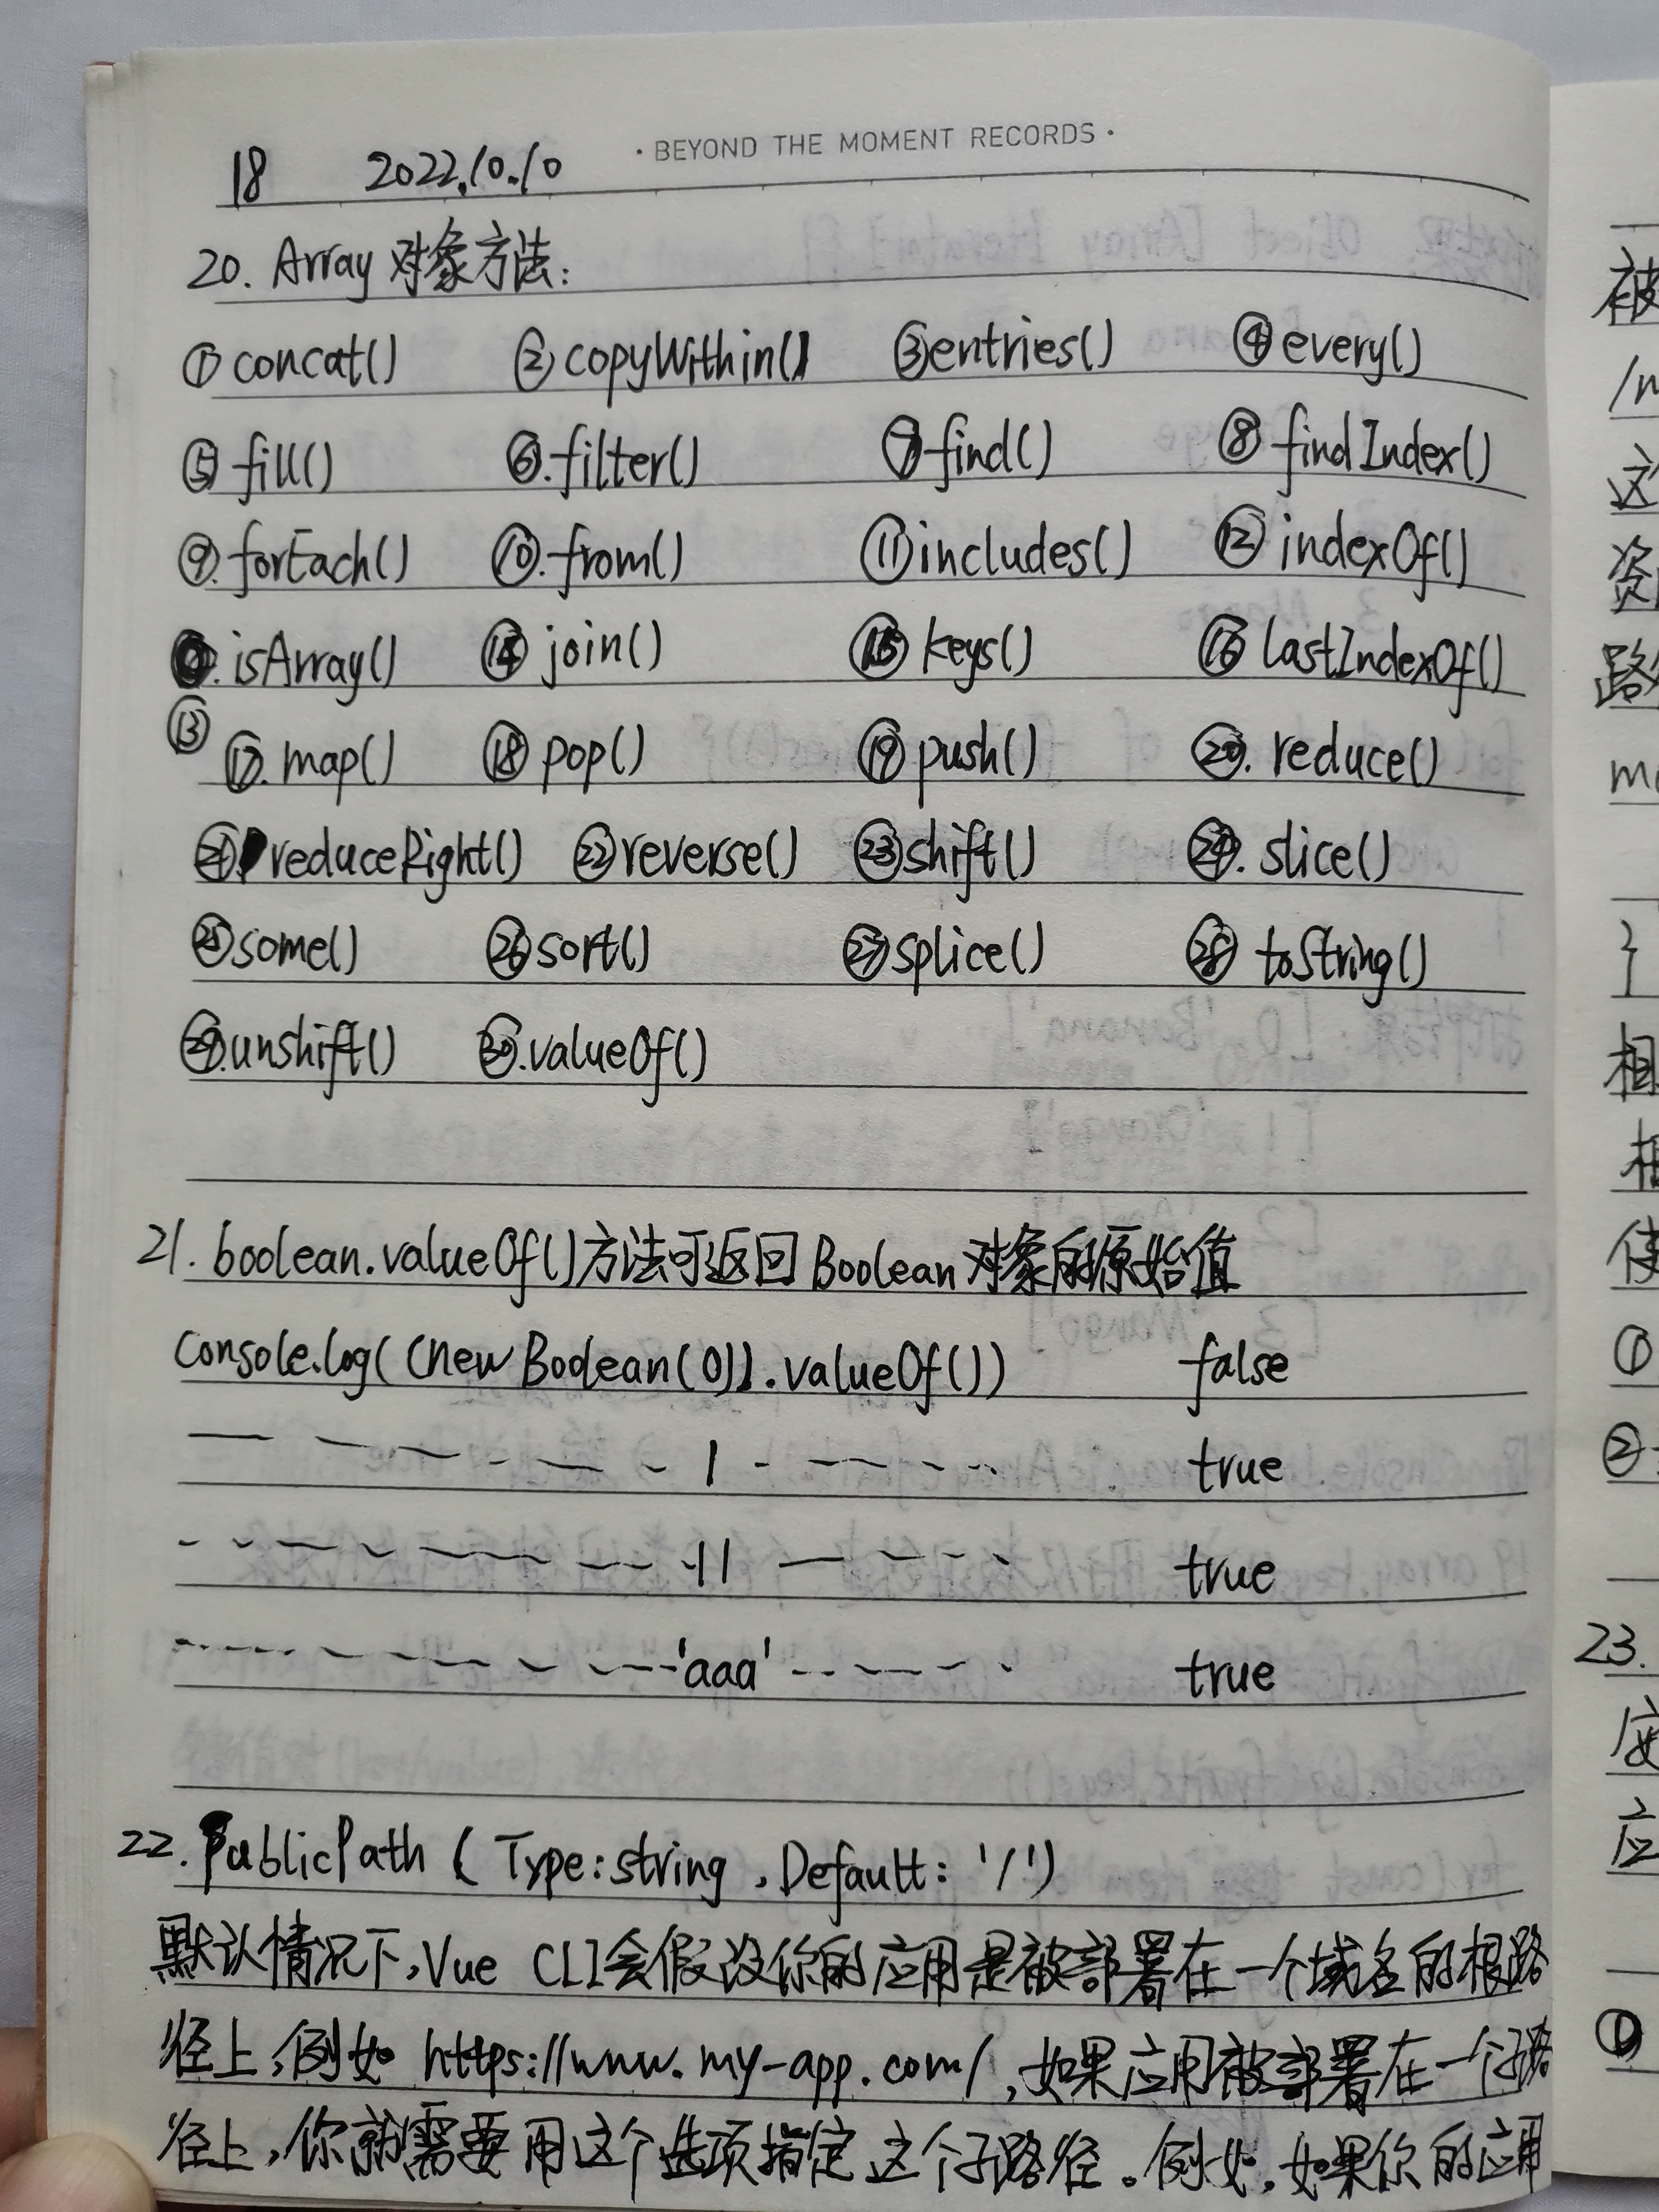 · BEYOND THE MOMENT RECORDS ·
18 2022.10.10
20. Array 对象方法:
① concat() ② copyWithin() ③ entries() ④ every()
⑤ fill() ⑥. filter() ⑦ find() ⑧ findIndex()
⑨. forEach() ⑩. from() ⑪ includes() ⑫ indexOf()
. isArray() ⑭ join() ⑮ keys() ⑯ lastIndexOf()
⑬
⑰. map() ⑱ pop() ⑲ push() ⑳. reduce()
㉑ reduceRight() ㉒ reverse() ㉓ shift() ㉔. slice()
㉕ some() ㉖ sort() ㉗ splice() ㉘ toString()
㉙. unshift() ㉚. valueOf()
21. boolean.valueOf()方法可返回 Boolean 对象的原始值
console.log((new Boolean(0)).valueOf()) false
1 true
11 true
'aaa' true
22. PublicPath ( Type: string , Default: '/')
默认情况下,Vue CLI会假设你的应用是被部署在一个域名的根路
径上,例如 https://www.my-app.com/,如果应用被部署在一个子路
径上,你就需要用这个选项指定这个子路径。例如,如果你的应用
被
这
相
使
①
②
23.
应
①